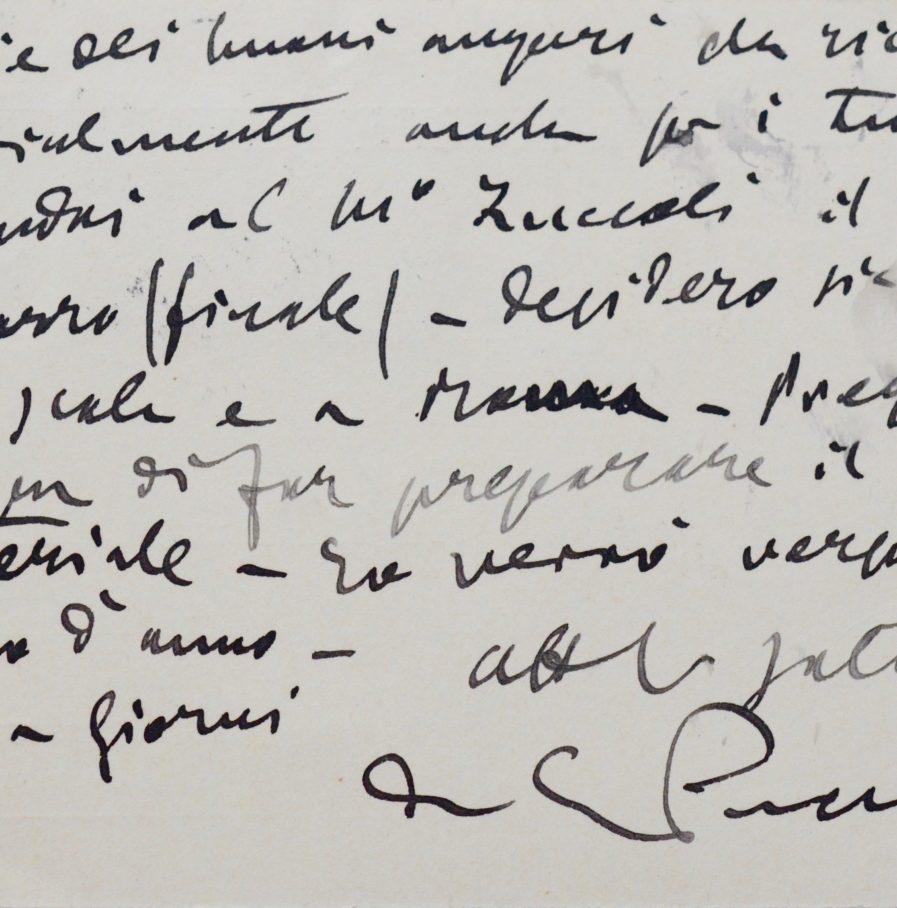 ie dei buoni auguri da ric
ialmente anche per i tu
ndai al Mº Zuccoli il
arro (finale) - desidero sia
scala e a - Preg
di far preparare il
eriale - Io verrò verso
o d'anno -
a giorni